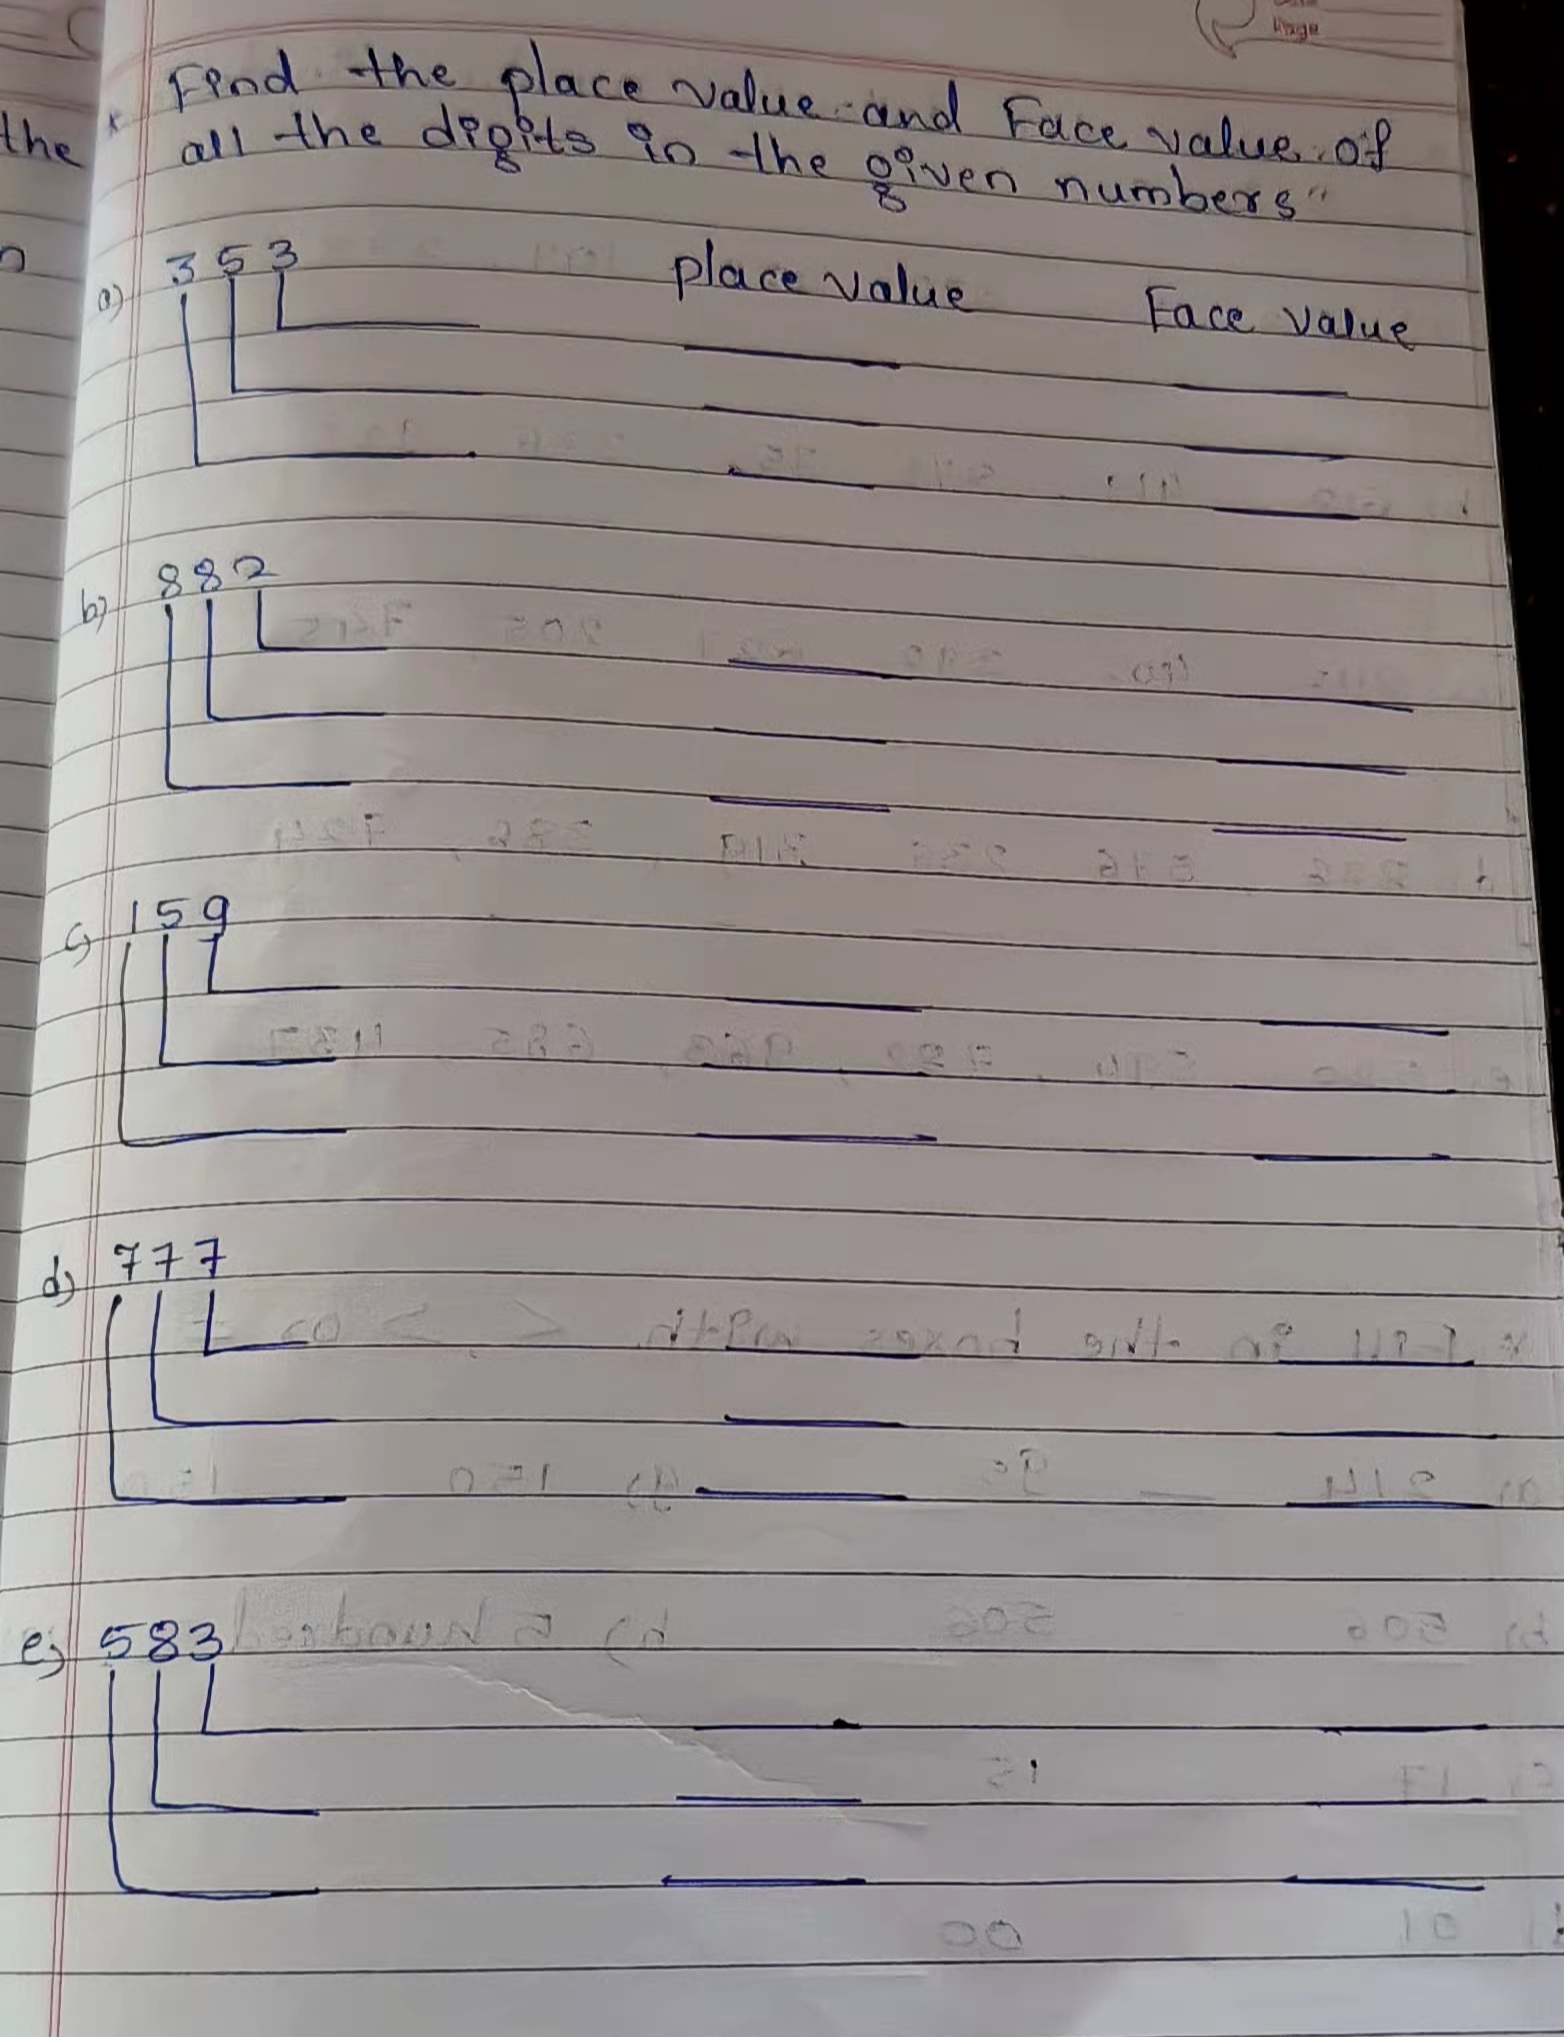 Page
* Find the place value and Face value of
the
all the digits in the given numbers"
a) 3 5 3
place value Face value
b) 8 8 2
c) 1 5 9
d) 7 7 7
e) 5 8 3